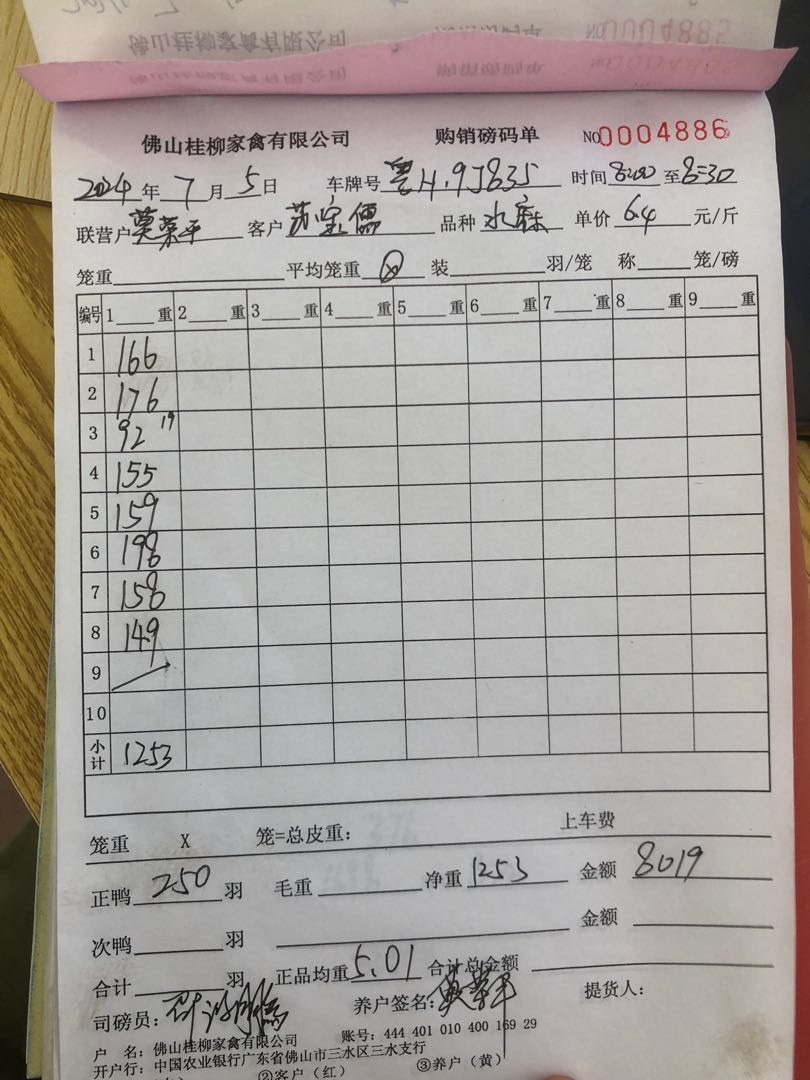 佛山桂柳家禽有限公司 购销磅码单 NO 0004885
佛山桂柳家禽有限公司 购销磅码单 NO 0004886
2024年7月5日 车牌号 粤H.9J835 时间 8:00 至 8:30
联营户 莫荣平 客户 品种 水麻 单价 6.4 元/斤
笼重 平均笼重 装 羽/笼 称 笼/磅
编号 1 重 2 重 3 重 4 重 5 重 6 重 7 重 8 重 9 重
1 166
2 176
3 92 19
4 155
5 159
6 198
7 158
8 149
9
10
小计 1253
笼重 X 笼=总皮重: 上车费
正鸭 250 羽 毛重 净重 1253 金额 8019
次鸭 羽 金额
合计 羽 正品均重 5.01 合计总金额
司磅员: 养户签名: 莫荣平 提货人:
户 名: 佛山桂柳家禽有限公司 账号: 444 401 010 400 169 29
开户行: 中国农业银行广东省佛山市三水区三水支行
②客户(红) ③养户(黄)